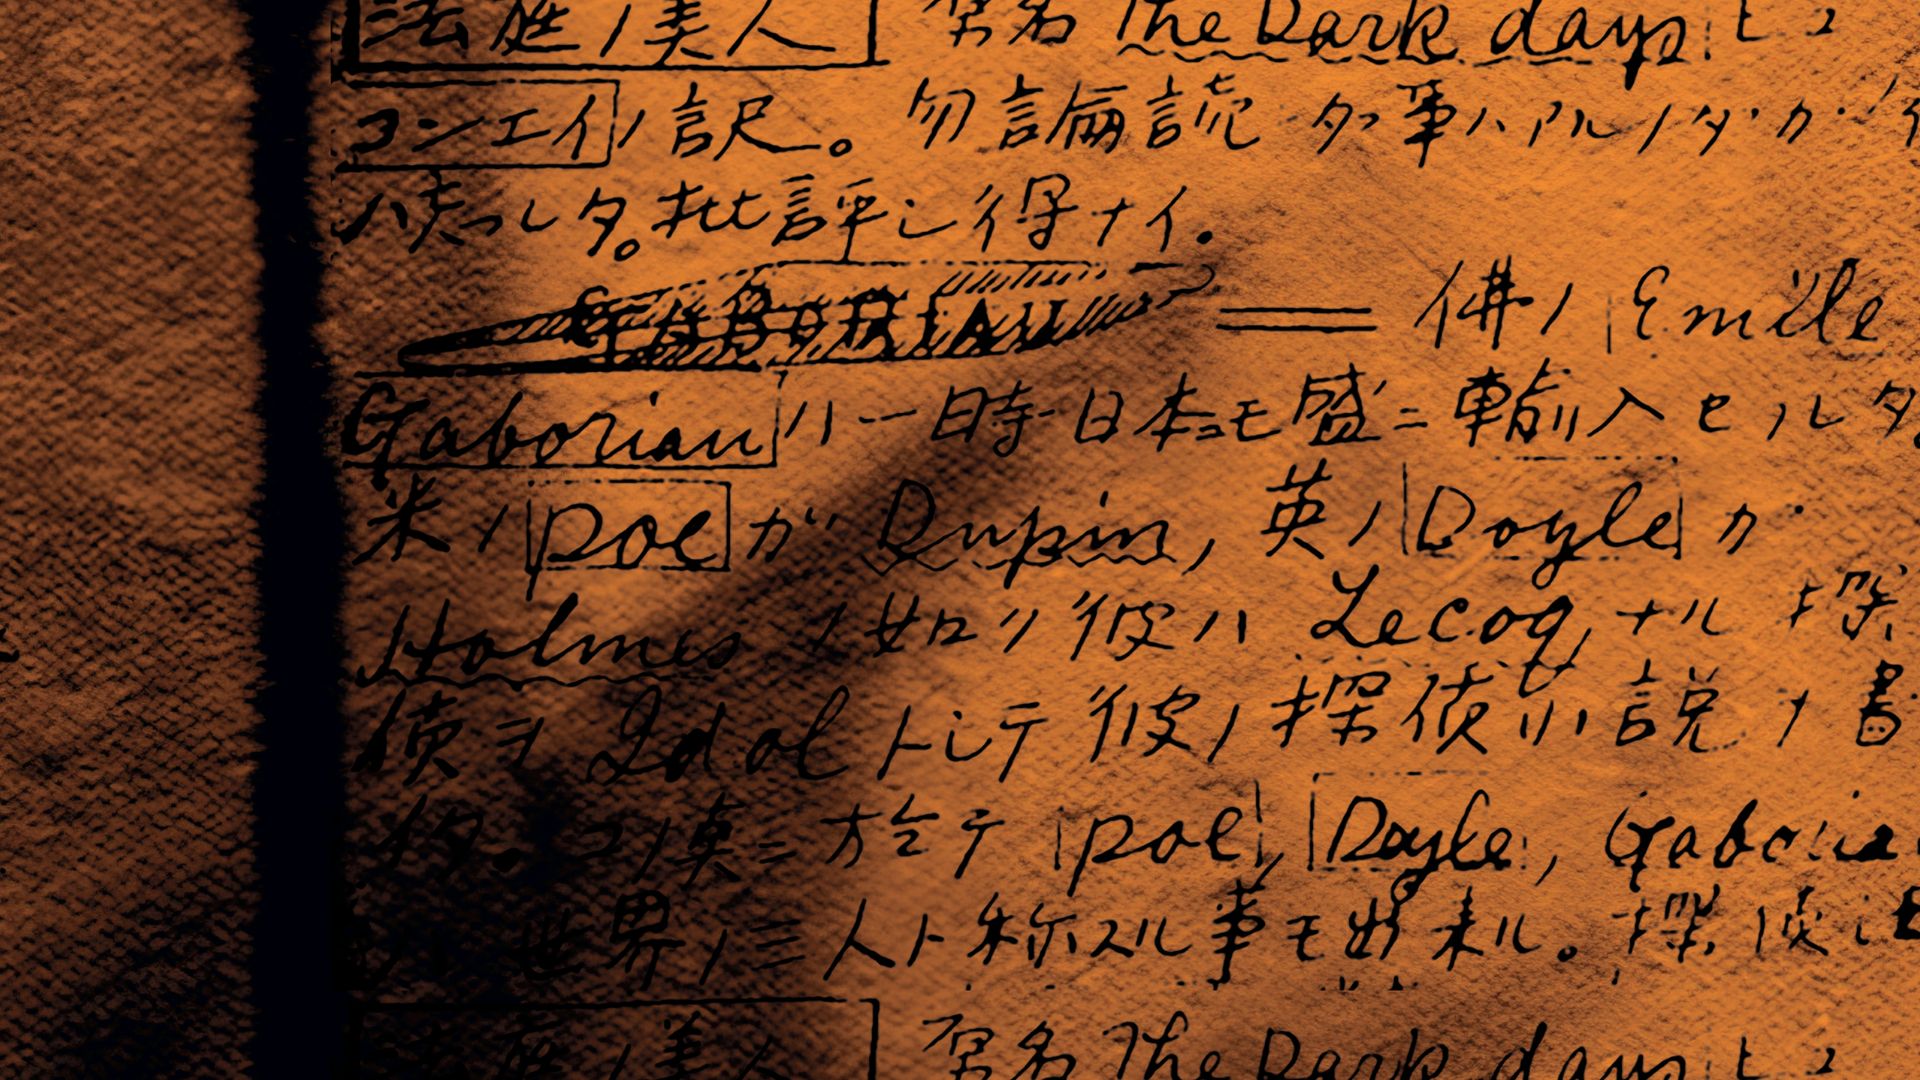 法庭ノ美人 原名 The Dark days ヒユ
コンエイノ訳。勿論読ダ事ハアルノダガ
ハ失ツレタ。批評シ得ナイ。
GABORIAU = 佛ノ Emile
Gaboriau ハ一時日本ニモ盛ニ輸入セルタ。
米ノ Poe ガ Dupin, 英ノ Doyle ガ
Holmes ノ如ク彼ハ Lecoq ナル探
偵ヲ Idol トシテ彼ノ探偵小説ヲ書
イタ。コノ点ニ於テ Poe, Doyle, Gaboriau
ハ世界ノ三人ト称スル事モ出来ル。探偵
法庭ノ美人 原名 The Dark days ヒユ